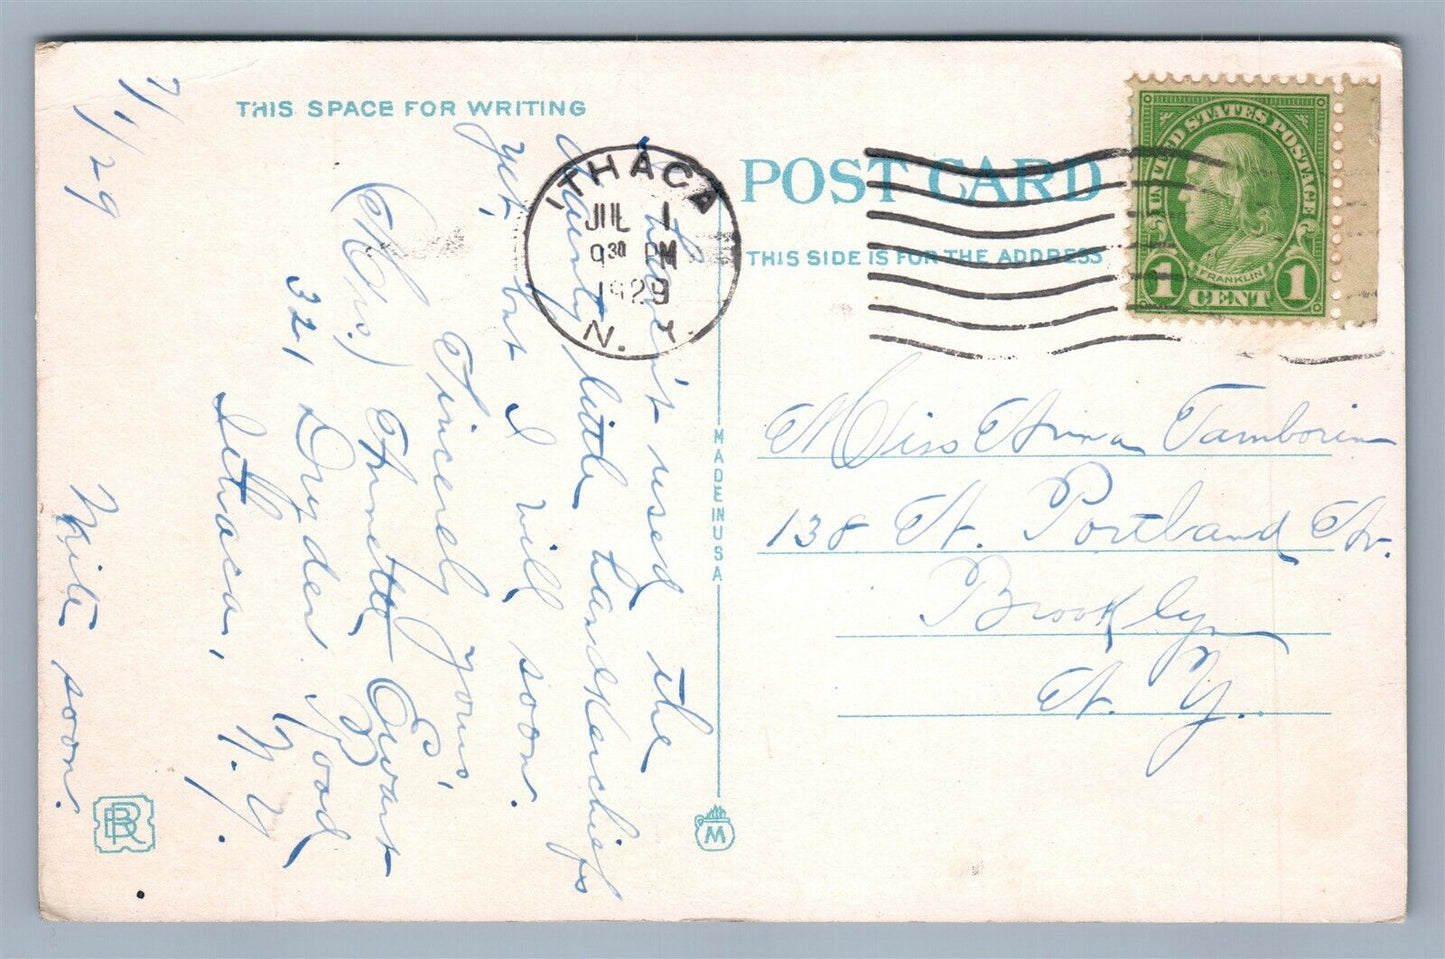 THIS SPACE FOR WRITING
POST CARD
THIS SIDE IS FOR THE ADDRESS
MADE IN USA
ITHACA
JUL 1
9 30 PM
1929
N. Y.
UNITED STATES POSTAGE
FRANKLIN
1 CENT 1
7/1/29
I haven't used the
dainty little handkerchiefs
yet, but I will soon.
Sincerely yours,
(Mrs.) Ewart
321 Dryden Road
Ithaca,
N. Y.
Write soon.
Miss Anna Tamborin
138 N. Portland Av.
Brooklyn
N. Y.
RR
M